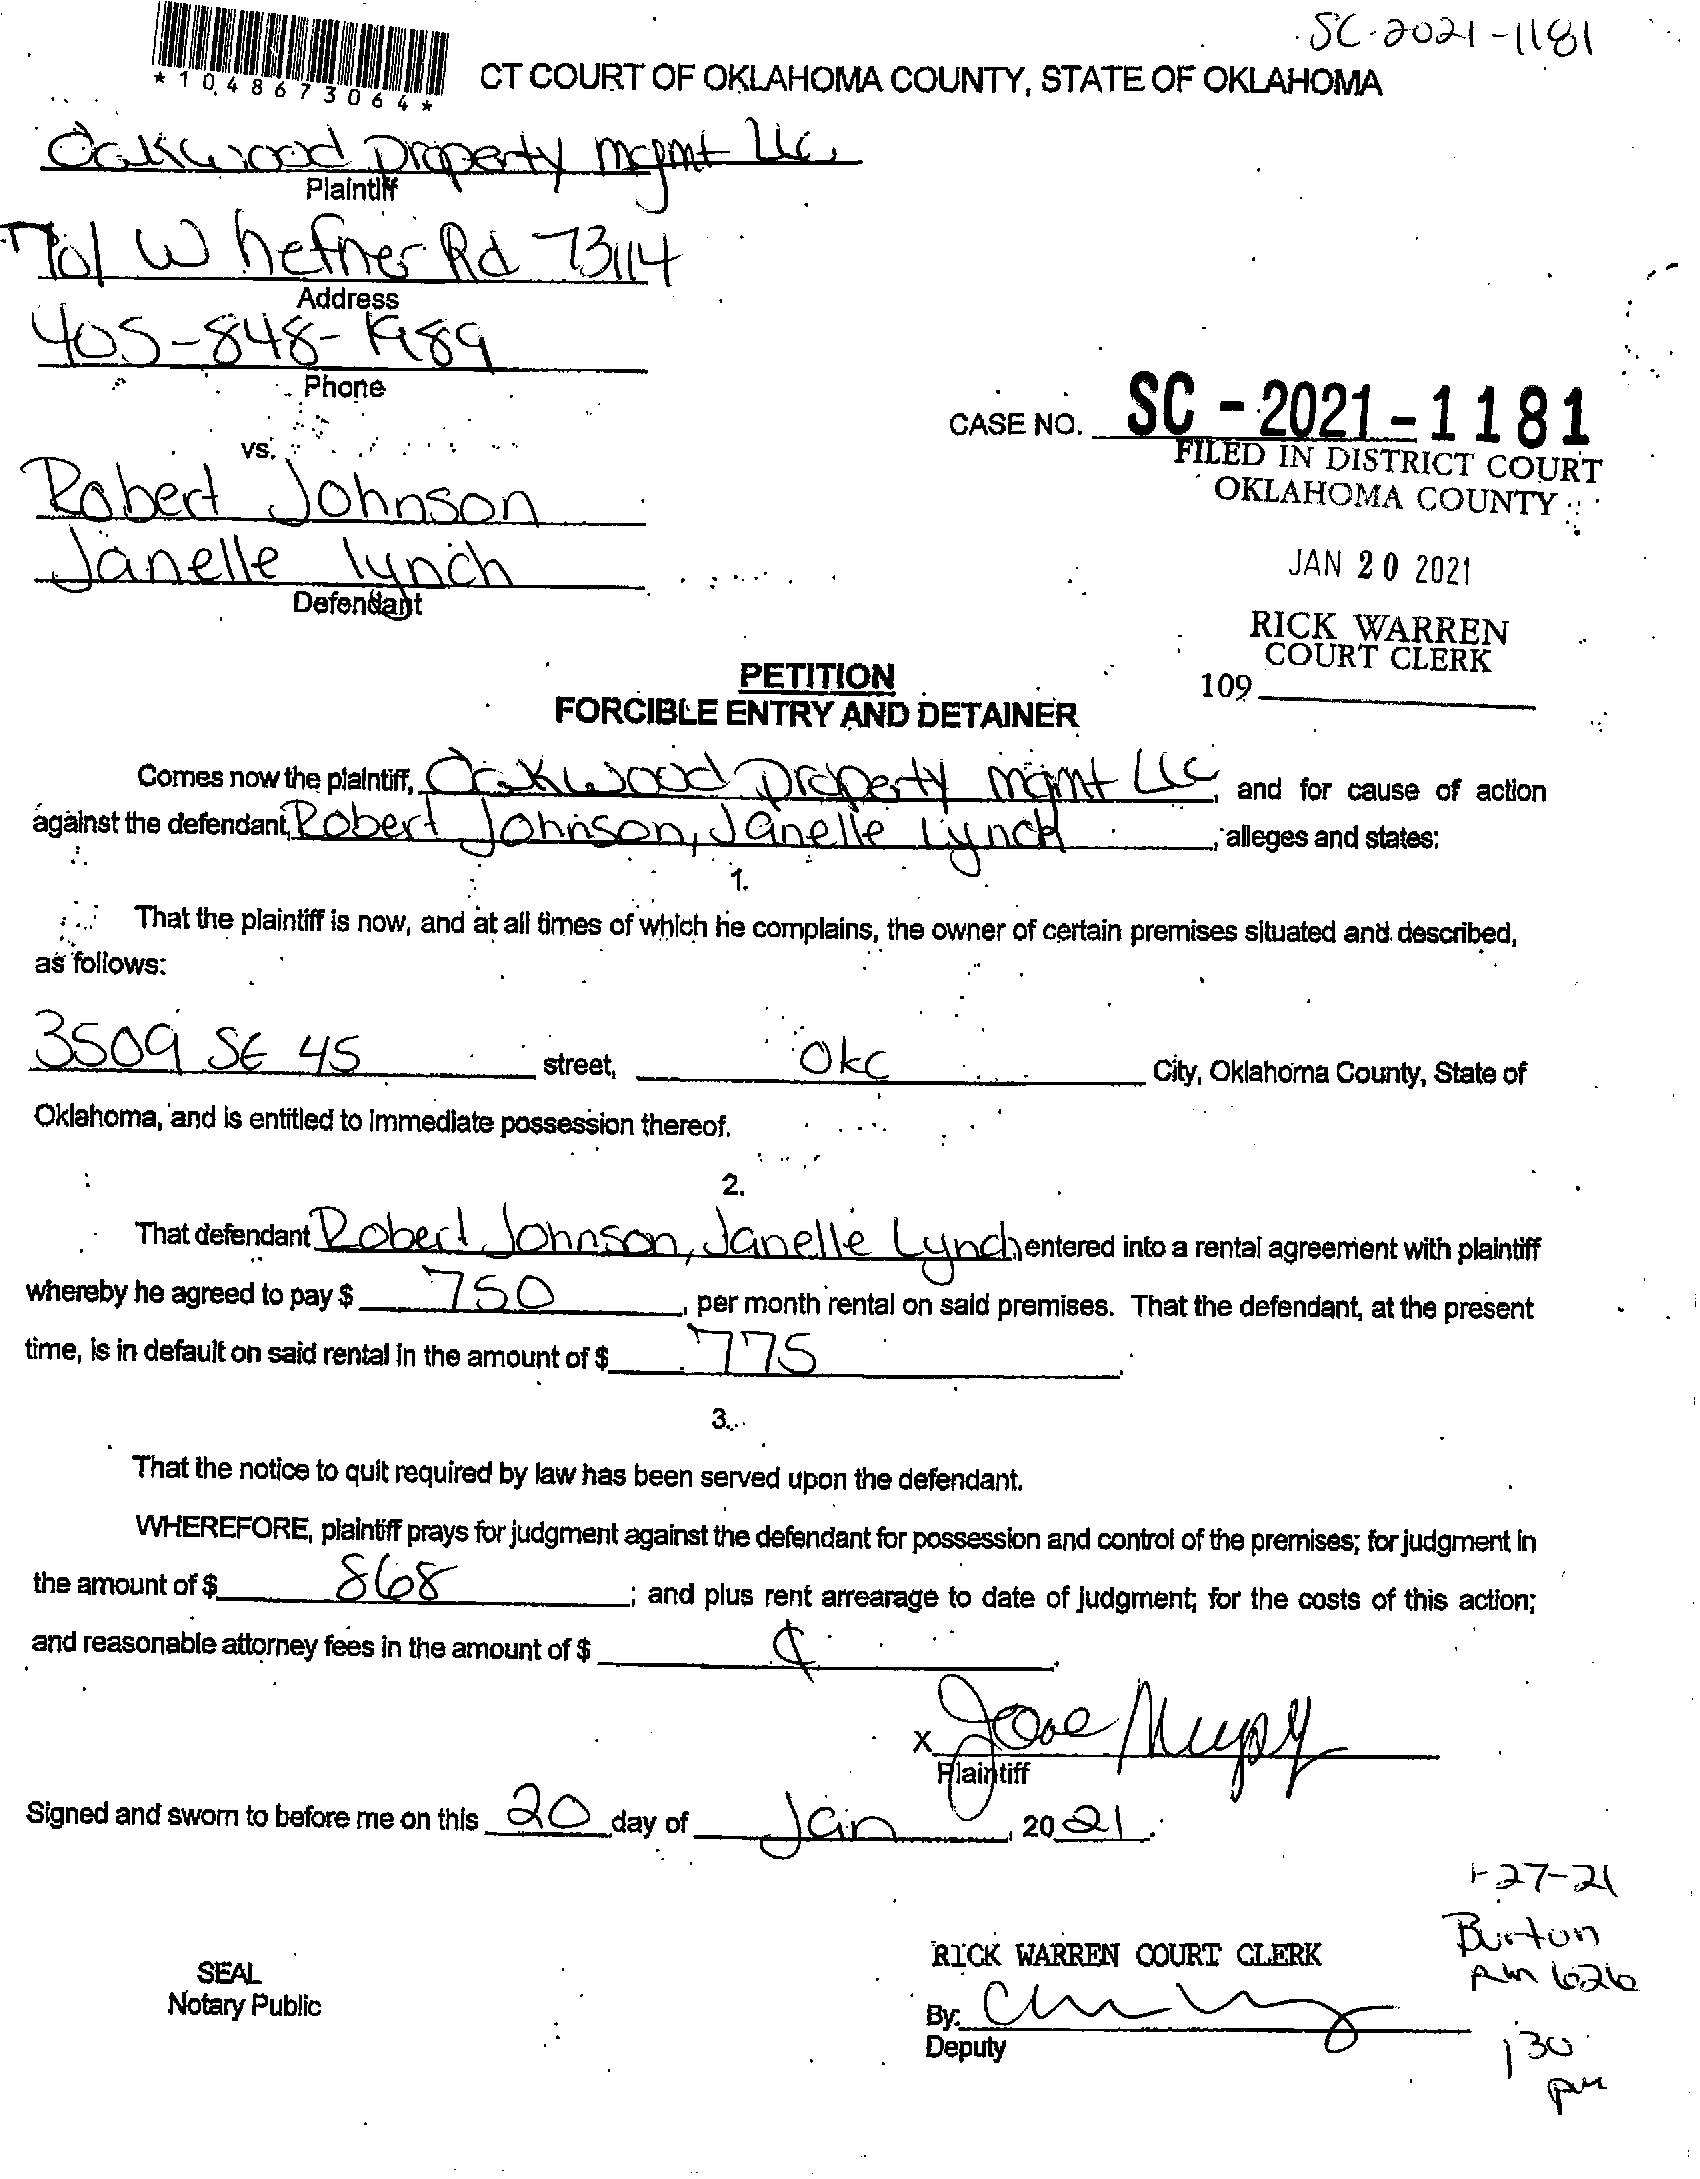 SC-2021-1181
*1048673064*
CT COURT OF OKLAHOMA COUNTY, STATE OF OKLAHOMA
Oakwood Property mgmt LLC,
Plaintiff
701 W hefner Rd 73114
Address
405-848-1989
Phone
CASE NO. SC-2021-1181
FILED IN DISTRICT COURT
OKLAHOMA COUNTY
vs.
Robert Johnson
Janelle lynch
Defendant
JAN 20 2021
RICK WARREN
COURT CLERK
109
PETITION
FORCIBLE ENTRY AND DETAINER
Comes now the plaintiff, Oakwood Property mgmt LLC, and for cause of action
against the defendant, Robert Johnson, Janelle Lynch, alleges and states:
1.
That the plaintiff is now, and at all times of which he complains, the owner of certain premises situated and described,
as follows:
3509 SE 45 street, OKC City, Oklahoma County, State of
Oklahoma, and is entitled to immediate possession thereof.
2.
That defendant Robert Johnson, Janelle Lynch entered into a rental agreement with plaintiff
whereby he agreed to pay $ 750, per month rental on said premises. That the defendant, at the present
time, is in default on said rental in the amount of $ 775.
3.
That the notice to quit required by law has been served upon the defendant.
WHEREFORE, plaintiff prays for judgment against the defendant for possession and control of the premises; for judgment in
the amount of $ 868; and plus rent arrearage to date of judgment; for the costs of this action;
and reasonable attorney fees in the amount of $
X
Plaintiff
Signed and sworn to before me on this 20 day of Jan, 2021.
1-27-21
Burton
RM 626
130
pm
SEAL
Notary Public
RICK WARREN COURT CLERK
By:
Deputy